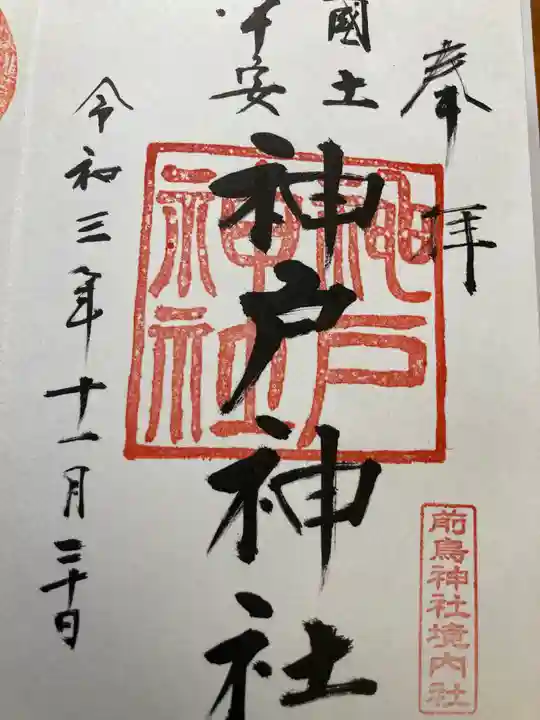 奉拝
國土
平安
神戸神社
令和三年十一月二十日
前鳥神社境内社